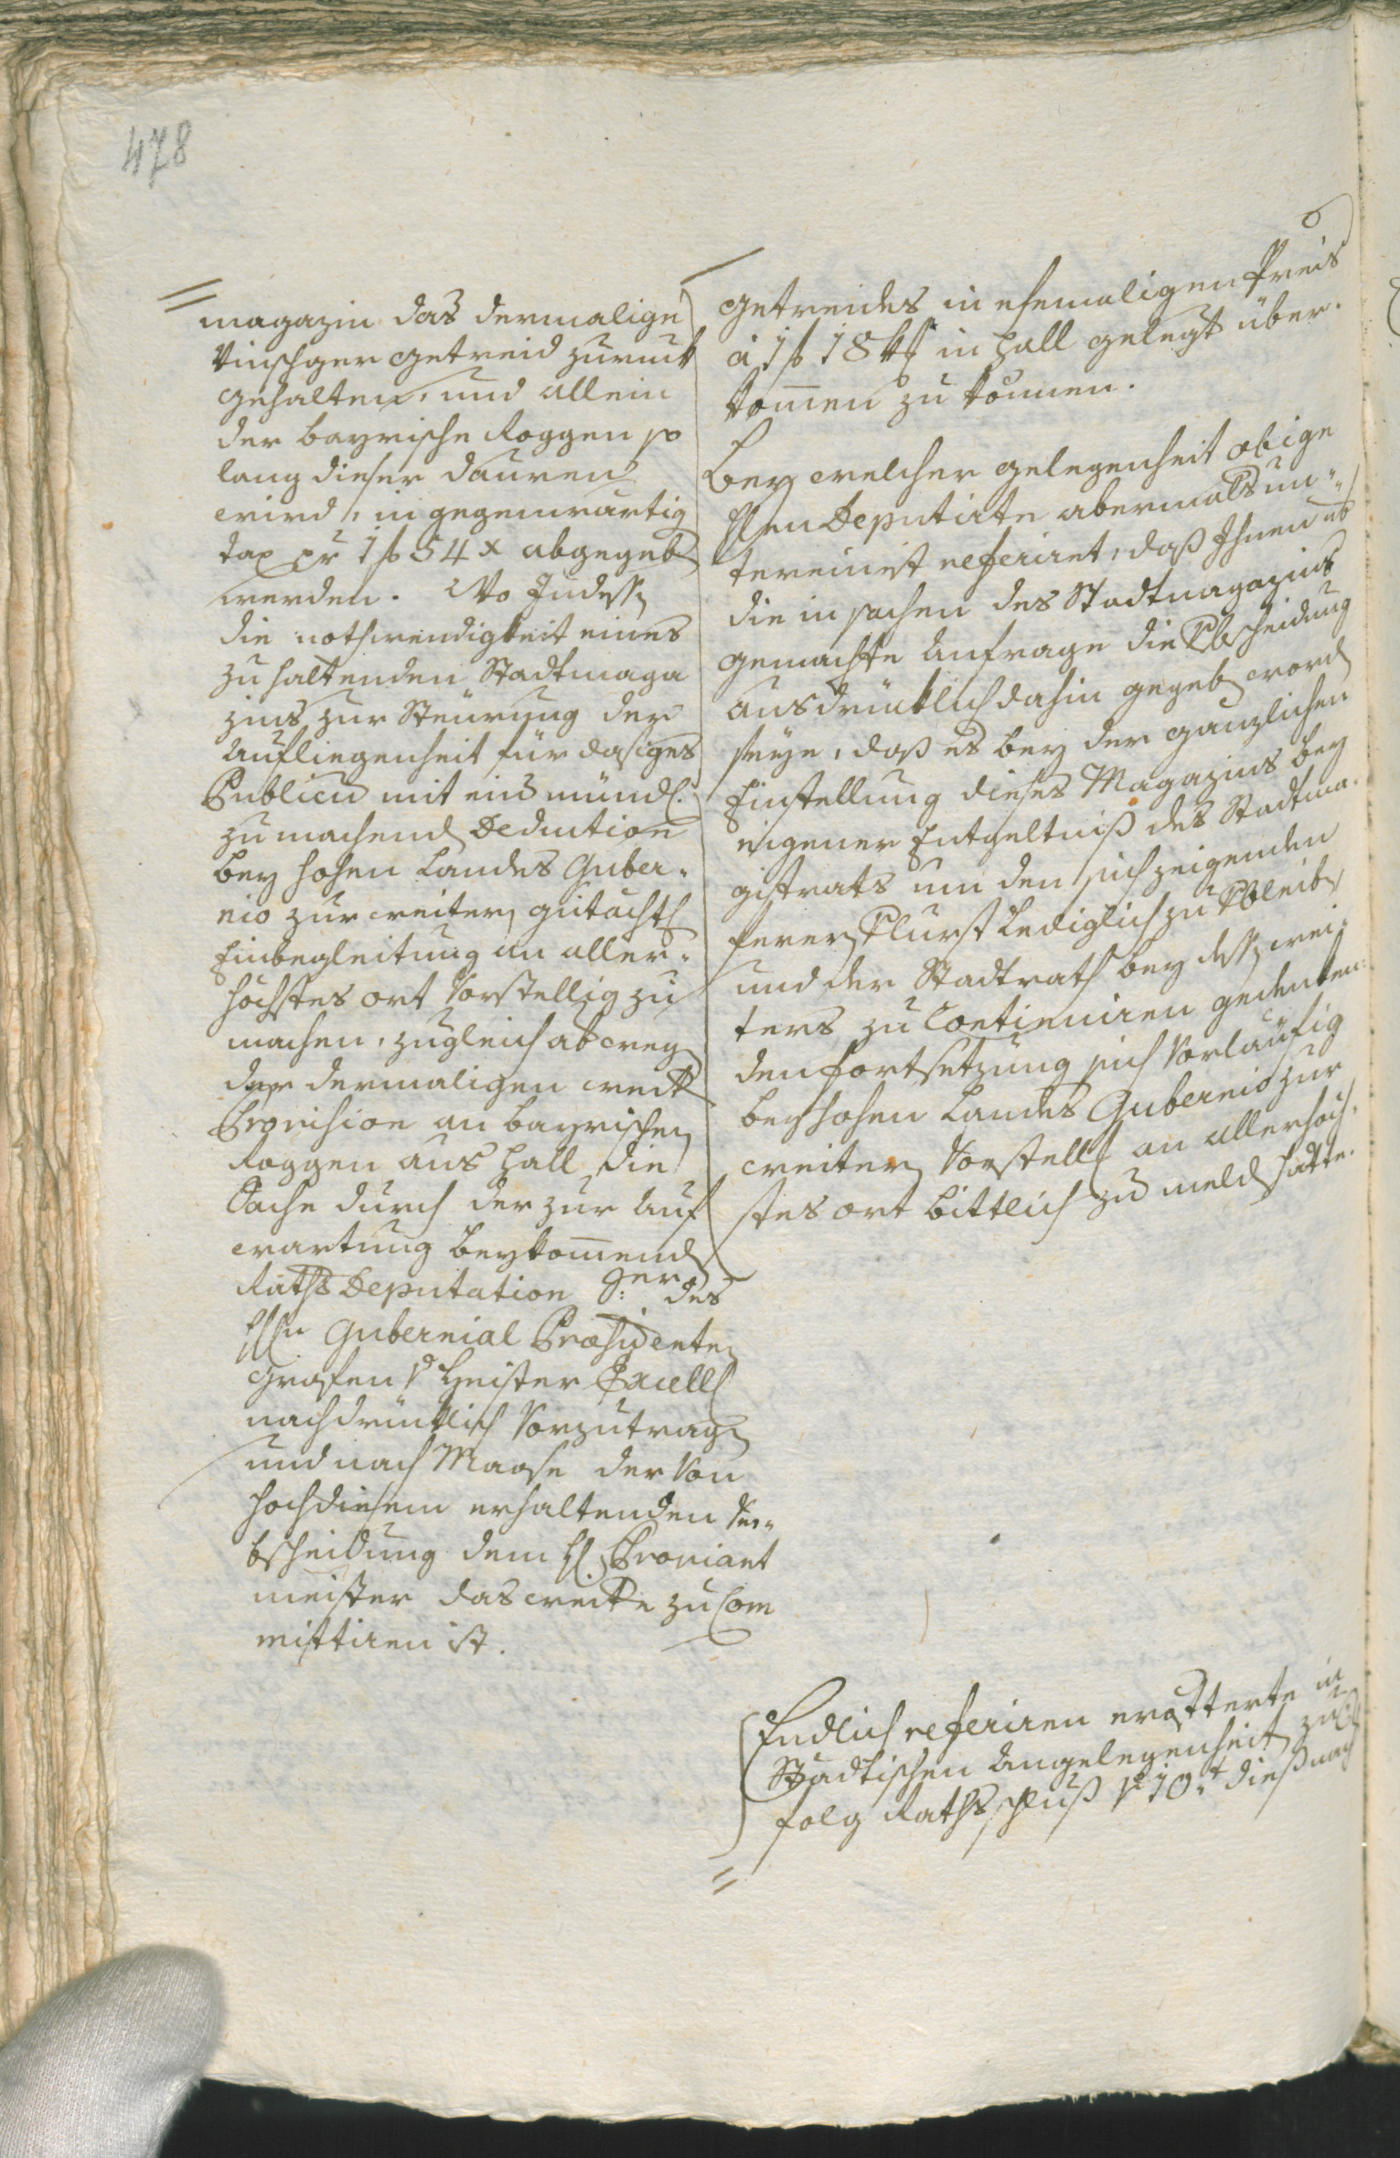 478
magazin das dermalige
Vinschger getreid zuruk
gehalten, und allein
der bayrische Roggen so
lang dieser dauren
wird, in gegenwärtig
tax pr 1 f 54 x abgegeb
werden. Wo Indessen
die nothwendigkeit eines
zuhaltenden Stadtmaga
zins zur Steurung der
Aufliegenheit für dasiges
Publicu mit eins mündl.
zu machend Deduction
bey hohen Landes Guber=
nio zur weitern gutächtl
Einbegleitung an aller=
höchstes ort Vorstellig zu
machen, zugleich ab weg
der dermaligen
Provision an bayrischen
Roggen aus Hall die
Sache durch der zur Auf
wartung beykomend
Raths Deputation Sr. des
Hn Gubernial Præsidenten
Grafen v Heister Excell
nachdrüklich Vorzutragen
und nach Maase der Von
hochdiesem erhaltenden Ver=
bscheidung dem H. Proviant
meister das weitere zu Com
mittiren ist.
getreides in ehemaligen Preis
à 1 f 18 in Hall gelegt über=
komen zu können.
Bey welcher gelegenheit obige
Hen Deputirte abermals un=
tereinist referiret, daß Ihnen üb
die in sachen des Stadtmagazins
gemachte Anfrage die Vbscheidung
ausdrüklich dahin gegeb word
seye, daß es bey der gänzlichen
Einstellung dieses Magazins bey
eigener Entgeltniß des Stadtma=
gistrats um den sich zeigenden
fereren Vlurst Lediglich zu Vbleiben
und der Stadtrath bey dessen wei=
ters zu Continuiren gedenken=
den fortsetzung sich Vorläufig
bey hohen Landes Gubernio zur
weitern Vorstell an allerhöch=
stes ort bittlich zu meld hätte.
Endlich referiren erötterte in
Städtischen Angelegenheit zu
folg Rathsschluß v 10.t dieß nach